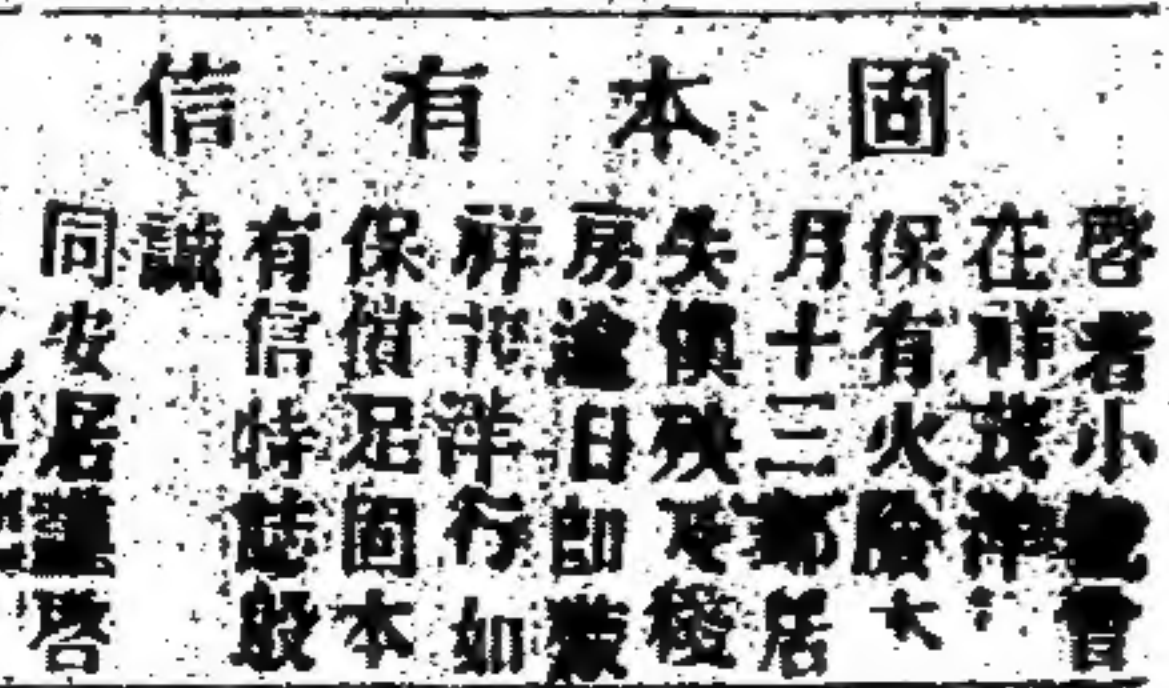 固本有信
啓者小號曾
在祥茂洋
保有火險本
月十三鄰居
失慎殃及樓
房逾日即蒙
祥茂洋行如
保償足固本
有信特誌殷
誠
同安居謹啓